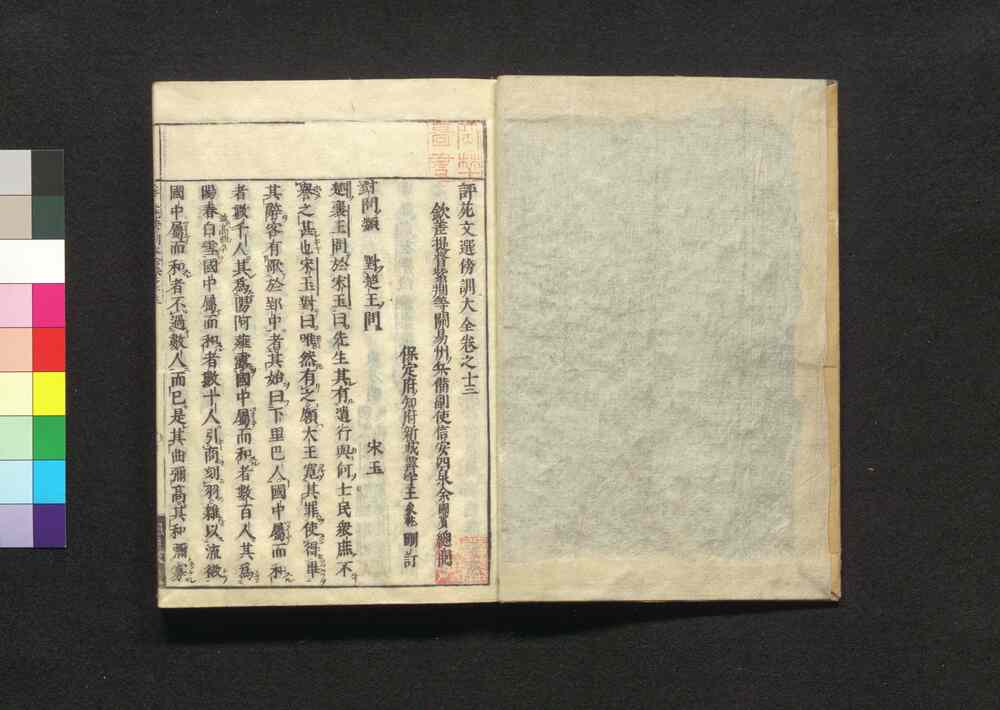 評苑文選傍訓大全卷之十三
欽差提督紫荊等關易州兵備副使信安四泉余國賓總閲
保定府知府新城晋宇王象乾刪訂
對問類　對楚王問　宋玉
楚襄王問於宋玉曰先生其有遺行與何士民衆庶不
譽之甚也宋玉對曰唯然有之願大王寛其罪使得畢
其辭客有歌於郢中者其始曰下里巴人國中屬而和
者數千人其爲陽阿薤露國中屬而和者數百人其爲
陽春白雪國中屬而和者數十人引商刻羽雜以流徵
國中屬而和者不過數人而已是其曲彌高其和彌寡